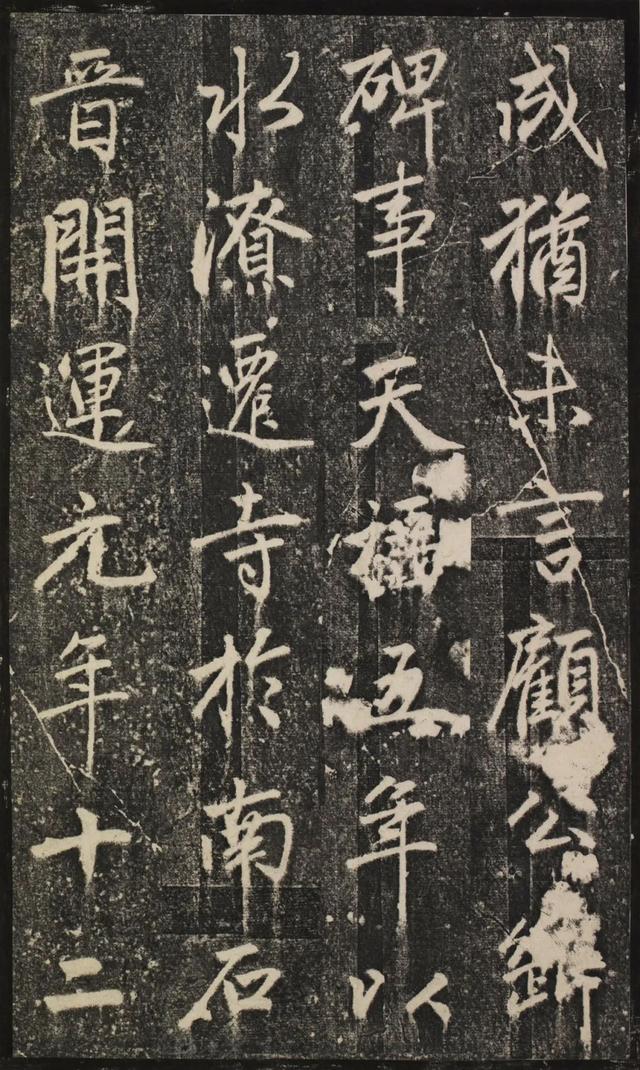 咸猶未言顧公
碑事天福五年以
水潦遷寺於南石
晉開運元年十二